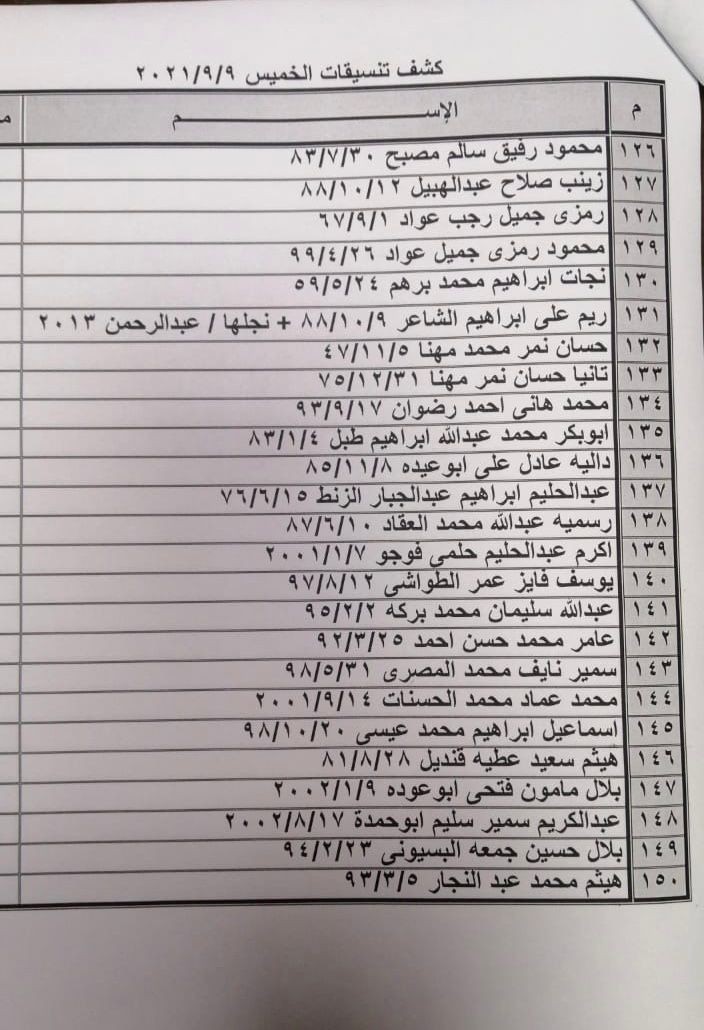 كشف تنسيقات الخميس ٢٠٢١/٩/٩
م الإســـــــــــــــــم
١٢٦ محمود رفيق سالم مصبح ٨٣/٧/٣٠
١٢٧ زينب صلاح عبدالهبيل ٨٨/١٠/١٢
١٢٨ رمزى جميل رجب عواد ٦٧/٩/١
١٢٩ محمود رمزى جميل عواد ٩٩/٤/٢٦
١٣٠ نجات ابراهيم محمد برهم ٥٩/٥/٢٤
١٣١ ريم على ابراهيم الشاعر ٨٨/١٠/٩ + نجلها / عبدالرحمن ٢٠١٣
١٣٢ حسان نمر محمد مهنا ٤٧/١١/٥
١٣٣ تانيا حسان نمر مهنا ٧٥/١٢/٣١
١٣٤ محمد هانى احمد رضوان ٩٣/٩/١٧
١٣٥ ابوبكر محمد عبدالله ابراهيم طبل ٨٣/١/٤
١٣٦ داليه عادل على ابوعيده ٨٥/١١/٨
١٣٧ عبدالحليم ابراهيم عبدالجبار الزنط ٧٦/٦/١٥
١٣٨ رسميه عبدالله محمد العقاد ٨٧/٦/١٠
١٣٩ اكرم عبدالحليم حلمي فوجو ٢٠٠١/١/٧
١٤٠ يوسف فايز عمر الطواشى ٩٧/٨/١٢
١٤١ عبدالله سليمان محمد بركه ٩٥/٢/٢
١٤٢ عامر محمد حسن احمد ٩٢/٣/٢٥
١٤٣ سمير نايف محمد المصرى ٩٨/٥/٣١
١٤٤ محمد عماد محمد الحسنات ٢٠٠١/٩/١٤
١٤٥ اسماعيل ابراهيم محمد عيسى ٩٨/١٠/٢٠
١٤٦ هيثم سعيد عطيه قنديل ٨١/٨/٢٨
١٤٧ بلال مامون فتحى ابوعوده ٢٠٠٢/١/٩
١٤٨ عبدالكريم سمير سليم ابوحمدة ٢٠٠٢/٨/١٧
١٤٩ بلال حسين جمعه البسيونى ٩٤/٢/٢٣
١٥٠ هيثم محمد عبد النجار ٩٣/٣/٥